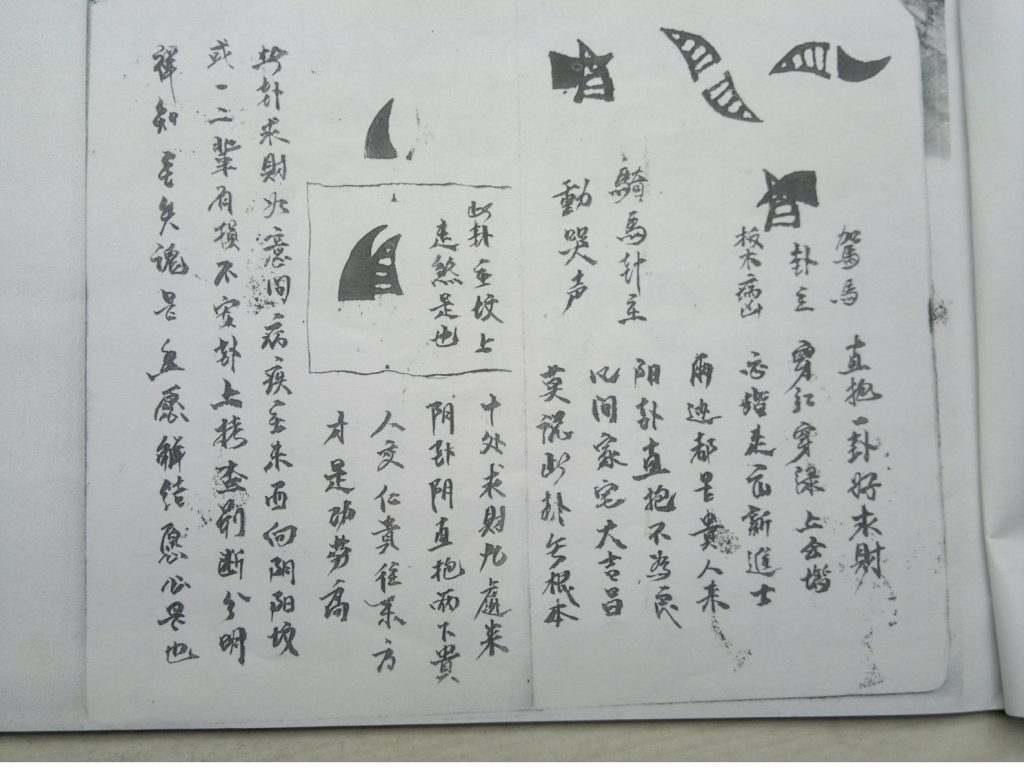 駕馬
卦主
板木病凶
直抱一卦好求財
穿紅穿綠上玉堦
玉堦走馬新進士
兩边都是貴人来
騎馬卦主
動哭声
阳卦直抱不為良
凡問家宅大吉昌
莫説此卦无根本
此卦主坟上
走煞是也
十处求財九處来
阴卦阴直抱両下貴
人交仁貴往来方
才是功劳高
卦求財如意問病疾主東西向阴阳坟
或一二輩有損不安卦上考查判断分明
祥知失魂是解结愿心是也